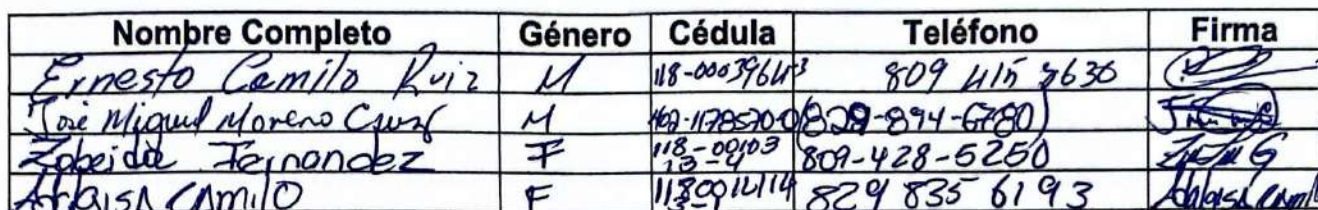 Nombre Completo Género Cédula Teléfono Firma
Ernesto Camilo Ruiz M 118-0003964-3 809 415 3630
José Miguel Moreno Cruz M 402-1178570-0 (829-894-6780)
Zobeida Fernandez F 118-00103 13-4 809-428-5250
Camilo F 829 835 6193 Camilo